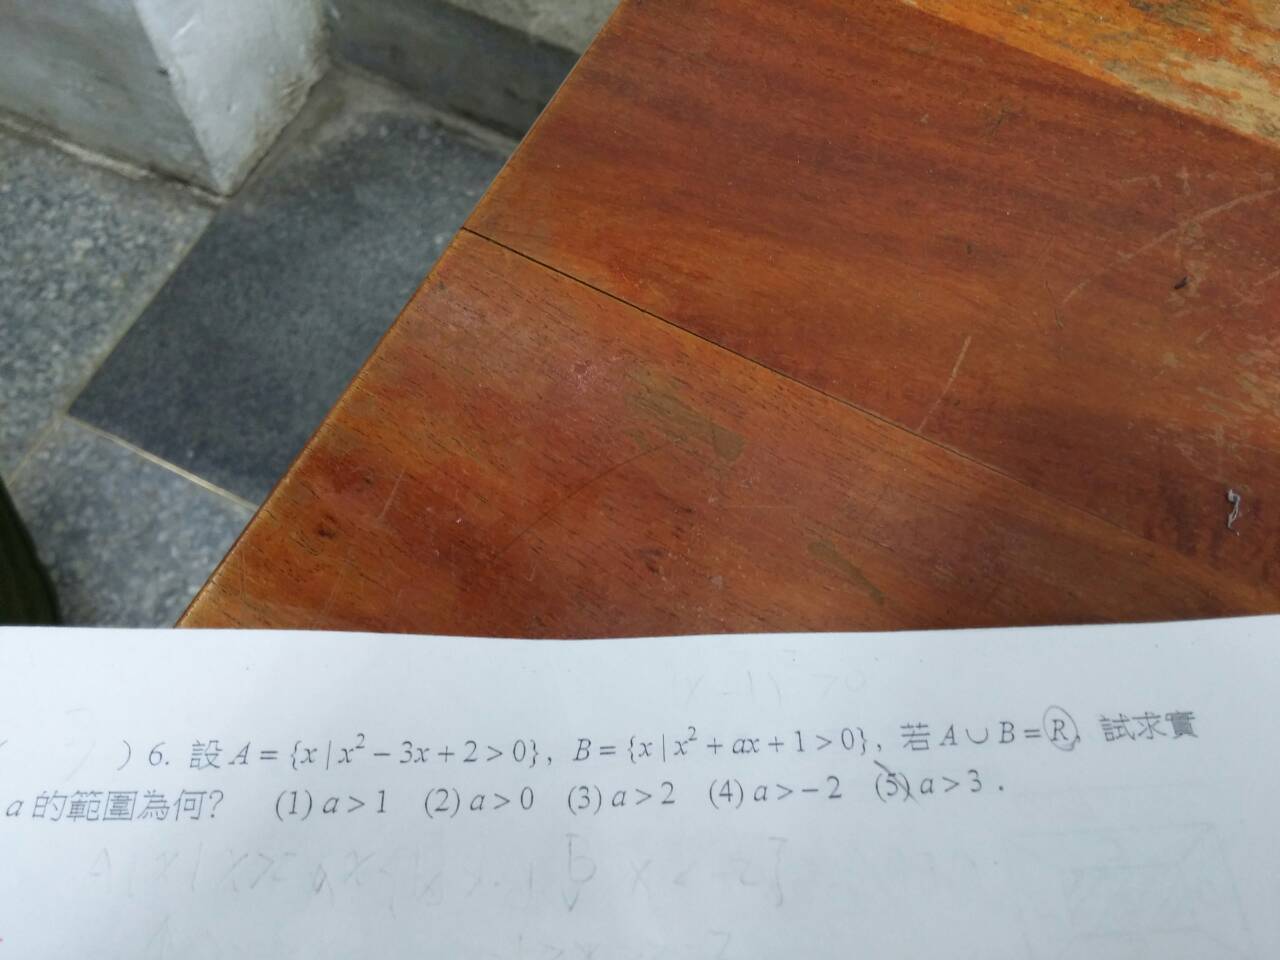 )6. 設 A = {x | x² − 3x + 2 > 0}, B = {x | x² + ax + 1 > 0}, 若 A ∪ B = R, 試求實
a 的範圍為何? (1) a > 1 (2) a > 0 (3) a > 2 (4) a > − 2 (5) a > 3 .